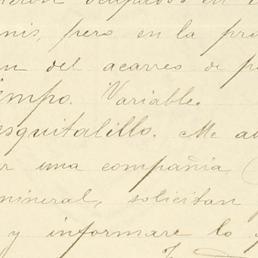 ocupados en
nis, pero en la pro
n del acarreo de p
iempo. Variable.
esquitalillo. Me a
r una compañia (
mineral, solicitan
y informare lo q